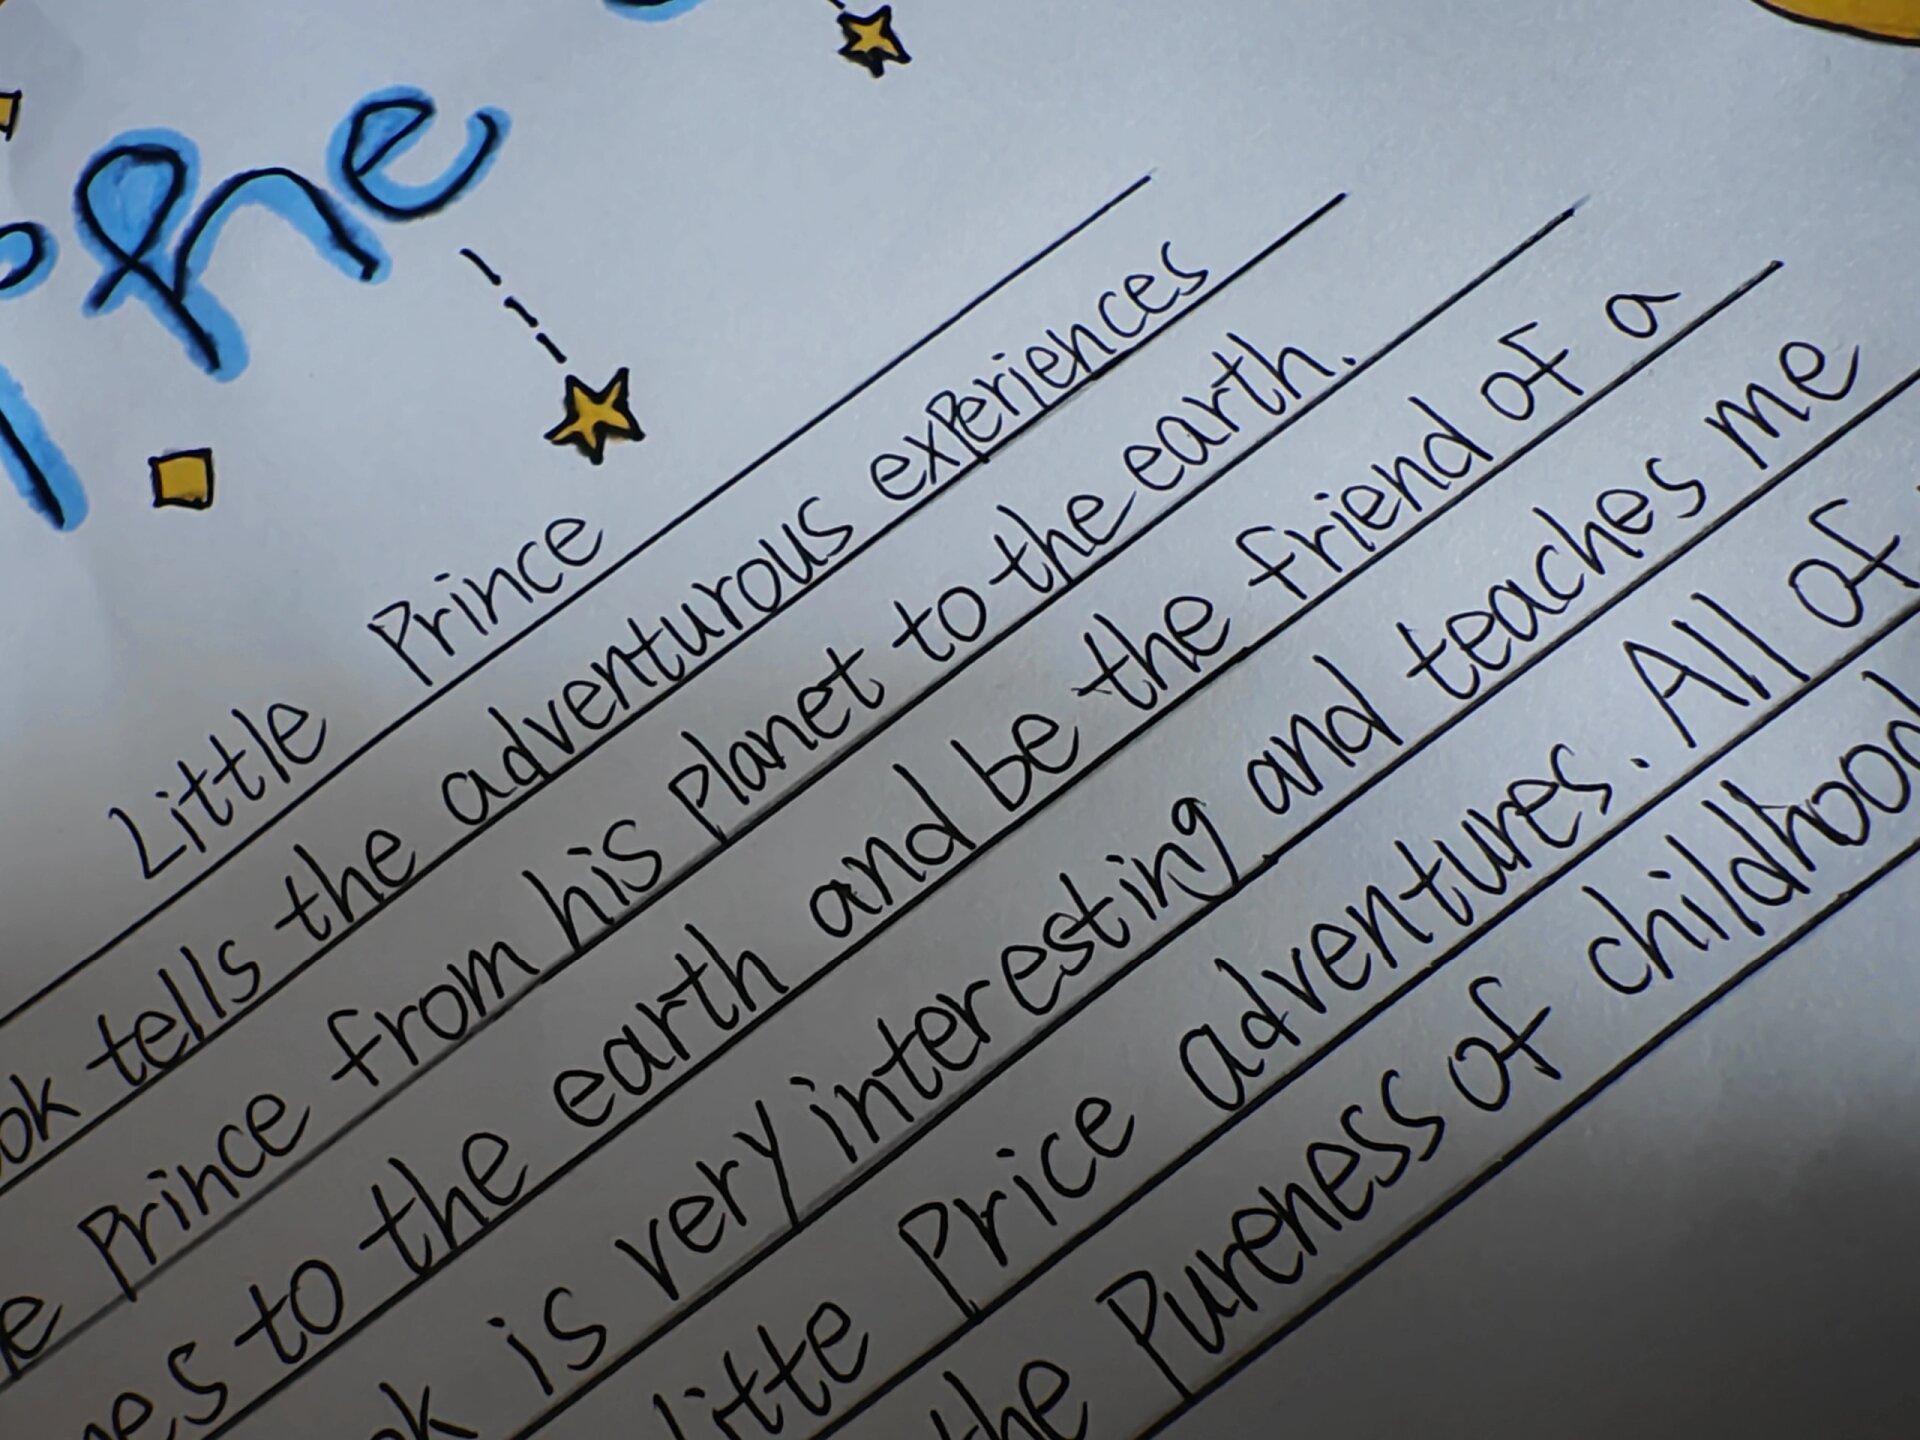 The
Little Prince
tells the adventurous experiences
Prince from his planet to the earth.
to the earth and be the friend of a
is very interesting and teaches me
litte Price adventures. All of
the Pureness of childhood